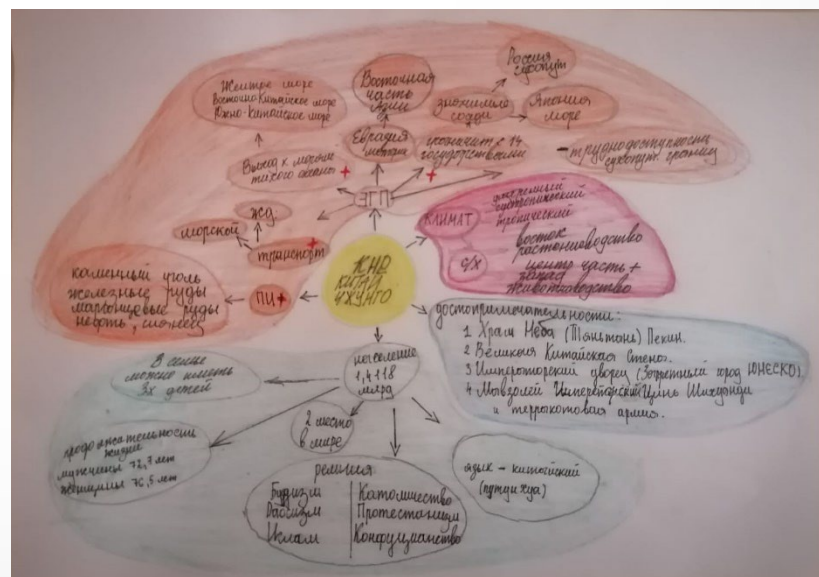 Желтое море
Восточно-Китайское море
Южно-Китайское море
Выход к морям
тихого океана +
Восточная
часть
Азии
Евразия
материк
Россия
сухопут
значимые
соседи
Япония
море
граничит с 14
государствами
+
- труднодоступность
сухопут. границ
ЭГП
ЖД
морской
транспорт +
каменный уголь
железные руды
марганцевые руды
нефть, сланец
ПИ +
КНР
КИТАЙ
ЧЖУНГО
КЛИМАТ
умеренный
субтропический
тропический
С/Х
восток
растениеводство
центр часть +
запад
животноводство
достопримечательности:
1 Храм Неба (Тяньтань) Пекин.
2 Великая Китайская Стена.
3 Императорский дворец (Запретный город ЮНЕСКО)
4 Мавзолей Императора Цинь Шихуанди
и терракотовая армия.
население
1,4118
млрд
В семье
можно иметь
3х детей
2 место
в мире
продолжительность
жизни
мужчины 72,7 лет
женщины 76,5 лет
религия:
Будизм
Даосизм
Ислам
Католичество
Протестанизм
Конфуцианство
язык - китайский
(путунхуа)